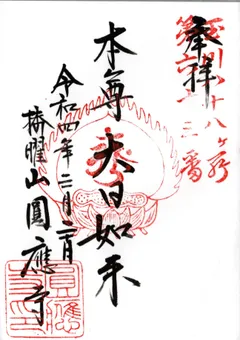 奉拝
八十八ヶ所
第六十三番
本尊 大日如来
令和四年二月二日
曜山圓應寺